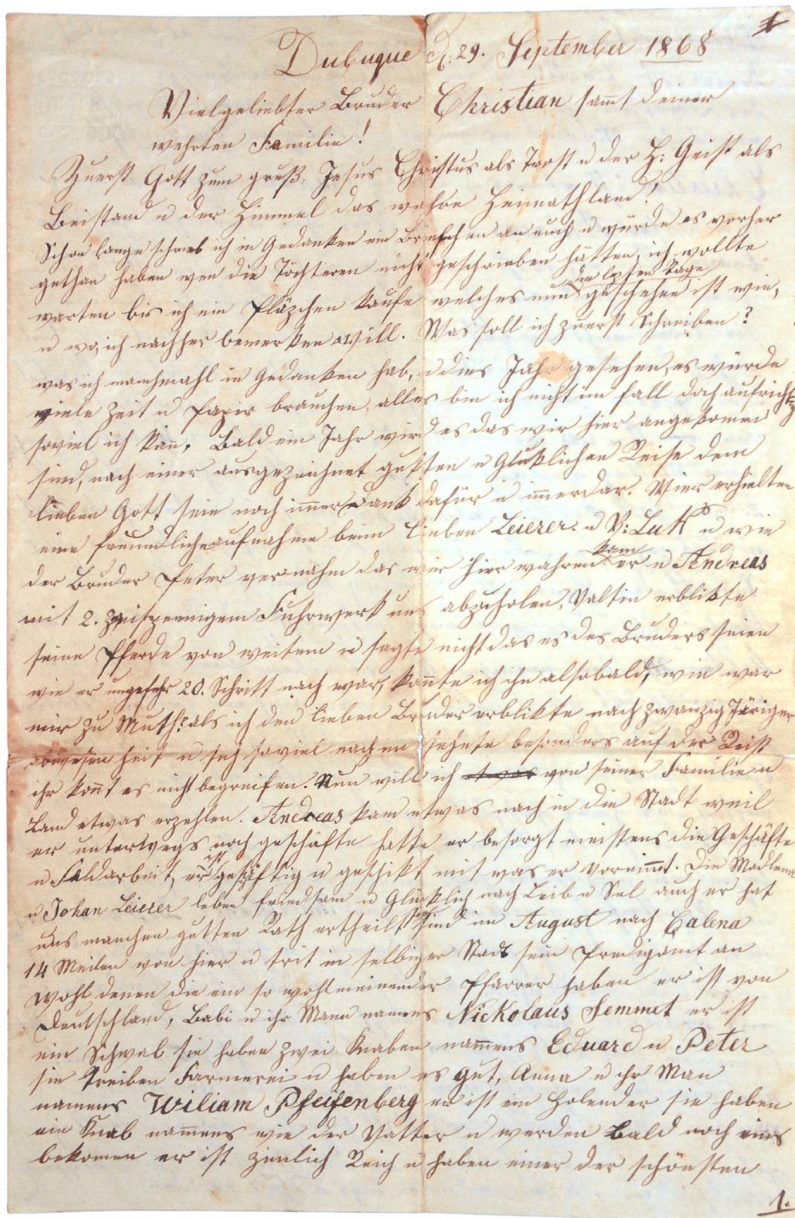 1
Dubuque d: 29. September 1868
Vielgeliebter Bruder Christian samt deiner
wehrten Familie!
Zuerst Gott zum gruß, Jesus Christus als Trost u der H: Geist als
Beistand u der Himmel das wahre Heimathland!
Schon lange schrieb ich in Gedanken ein Briefchen an euch u würde es vorher
gethan haben wen die Töchteren nicht geschrieben hätten, ich wollte
die letzten tage
warten bis ich ein Pläzchen kaufe welches nun geschehen ist wie,
u wo, ich nachher bemerken will. Was soll ich zuerst Schreiben?
was ich manchmahl in Gedanken hab, u dies Jahr gesehen, es würde
viele Zeit u Papir brauchen, alles bin ich nicht im fall doch aufrichtig
soviel ich kan, Bald ein Jahr wird es das wir hier angekomen
sind, nach einer ausgezeichnet gutten u Glüklichen Reise dem
lieben Gott sein noch immer Dank dafür u immerdar. Wier erhielten
eine freundliche aufnahme beim lieben Leierer u V: Luk u wie
der Bruder Peter vernahm das wir hier wahren kam er u Andreas
mit 2. zweispennigem Fuhrwerk uns abzuholen, Valtin erblikte
seine Pferde von weitem u sagte nicht das es des Bruders seien
wie er ungefehr 20. Schritt nach war, konte ich ihn alsobald, wie war
mir zu Muth? als ich den lieben Bruder erblikte nach zwanzig Järiger
abwesenheit u sich soviel nach im sehnte besonders auf der Reise
ihr könt es nicht begreifen. Nun will ich von seiner Familie u
Land etwas erzehlen. Andreas kam etwas nach in die Stadt weil
er unterwegs noch geschäfte hatte er besorgt meistens die Geschäfte
u Feldarbeit, er ist geschäftig u geschikt mit was er vornimt. Die Madlena
u Johan Leierer leben friedsam u Glücklich nach Leib u Sel auch er hat
uns manchen gutten Rath ertheilt sind im August nach Galena
14 Meilen von hier u trit in selbiger Stadt sein Predigamt an
wohl denen die ein so wohlmeinender Pfarrer haben er ist von
Deutschland, Babi u ihr Mann namens Nickolaus Semmet er ist
ein Schwab sie haben zwei Knaben namens Eduard u Peter
sie treiben Farmerei u haben es gut, Anna u ihr Man
namens Wiliam Pfeifenberg er ist ein Holender sie haben
ein Knab namens wie der Vatter u werden Bald noch eins
bekomen er ist zimlich Reich u haben einer der schönsten
1.